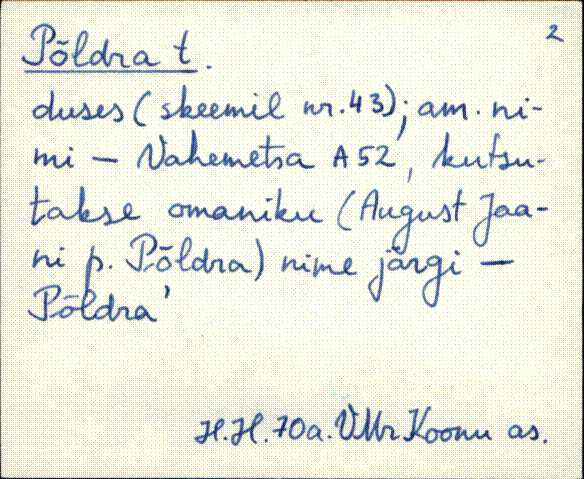 2
Põldra t.
duses (skeemil nr. 43); am. ni-
mi – Vahemetsa A 52, kutsu-
takse omaniku (August Jaa-
ni p. Põldra) nime järgi –
Põldra'
H.H. 70a. VMr Koonu as.